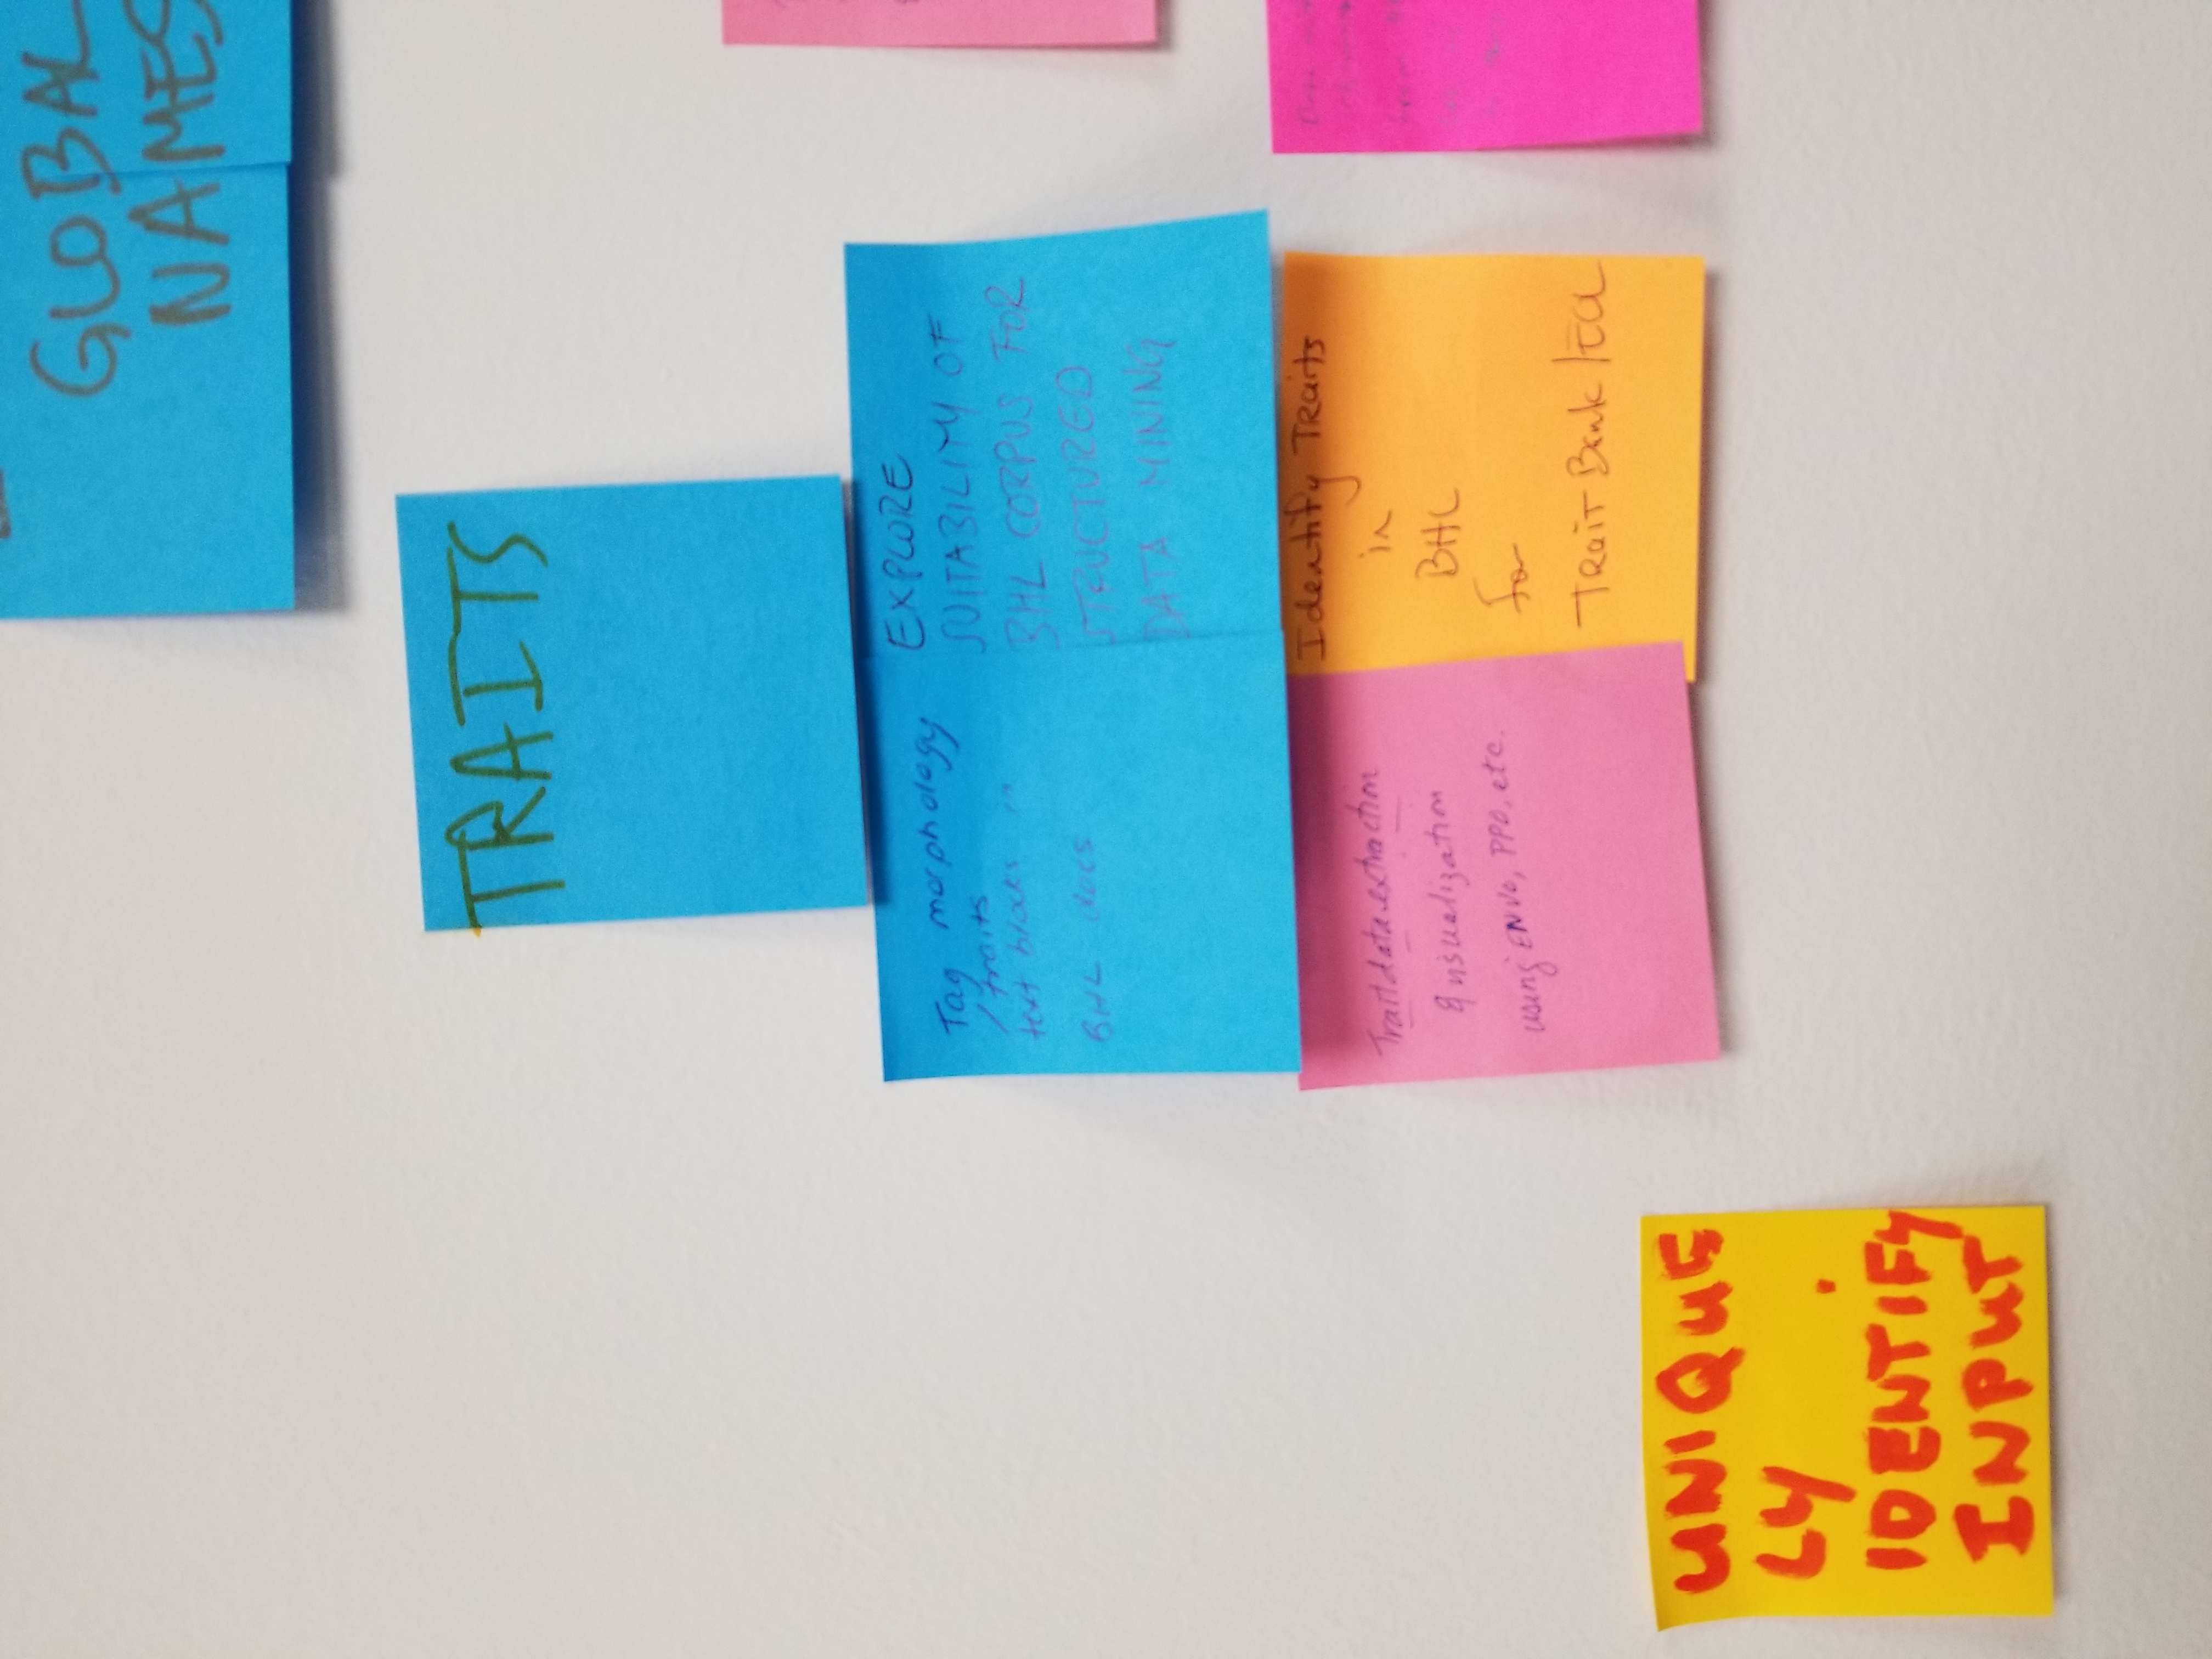 GLOBAL
NAMES
TRAITS
Tag morphology
/traits
text blocks in
BHL docs
EXPLORE
SUITABILITY OF
BHL CORPUS FOR
STRUCTURED
DATA MINING
Trait data extraction
& visualization
using ENVO, PPO, etc.
Identify Traits
in
BHL
for
Trait Bank/EOL
UNIQUE
LY
IDENTIFY
INPUT